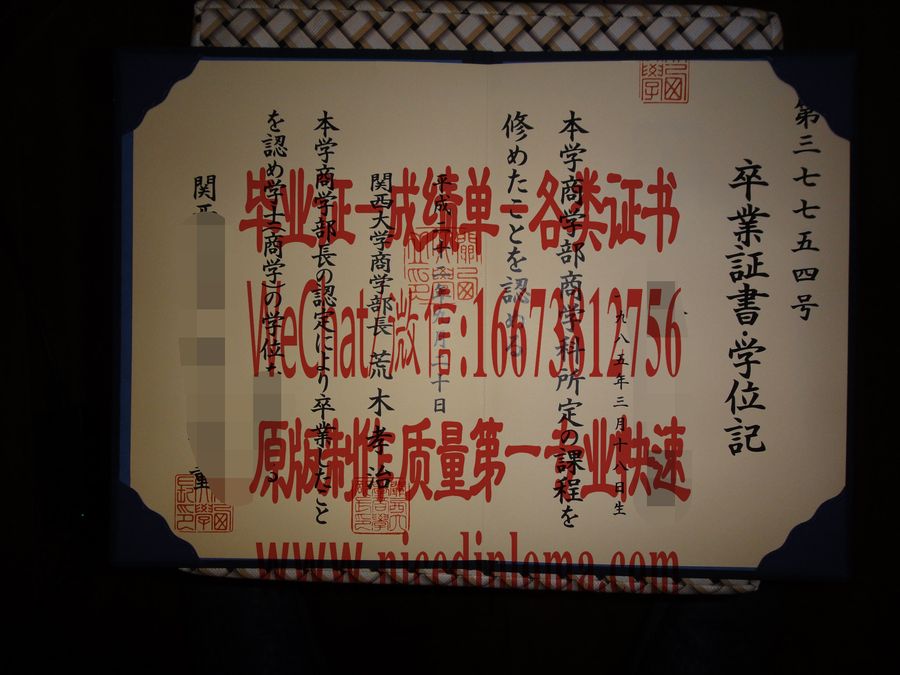 第三七七五四号
卒業証書・学位記
一九八五年三月十八日生
本学商学部商学科所定の課程を
修めたことを認める
平成二十
年
月二十日
関西大学商学部長 荒木孝治
本学商学部長の認定により卒業したこと
を認め学士(商学)の学位を
関西
毕业证—成绩单—各类证书
WeChat/微信:16673912756
原版制作质量第一专业快速
www.nicediploma.com